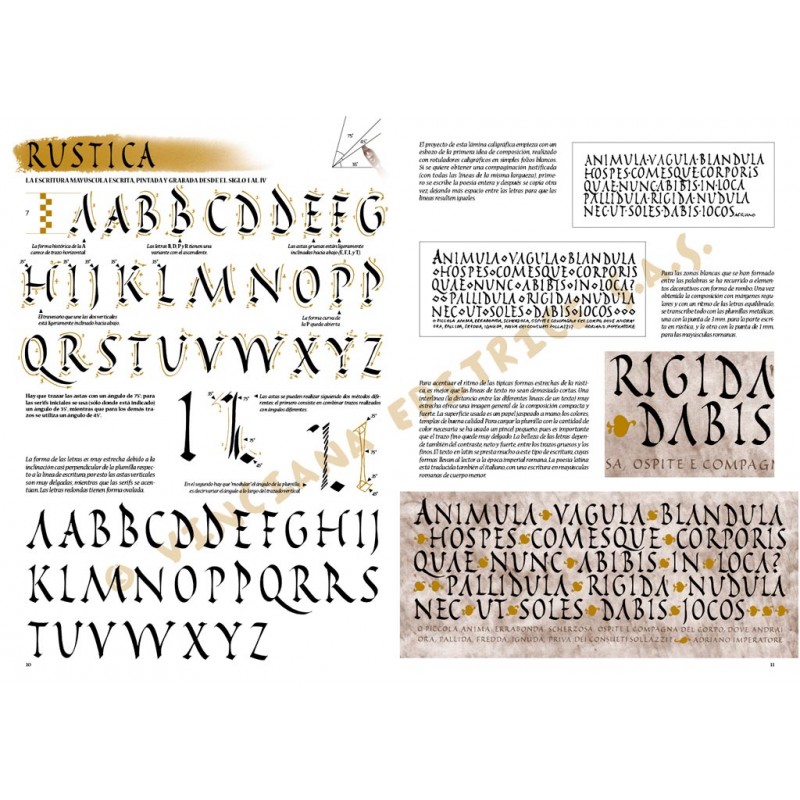 RUSTICA
75°
45°
35°
LA ESCRITURA MAYÚSCULA ESCRITA, PINTADA Y GRABADA DESDE EL SIGLO I AL IV
7
AABBCDDEFG
La forma histórica de la A
carece de trazo horizontal
Las letras B, D, P y R tienen una
variante con el ascendente.
Las astas gruesas están ligeramente
inclinadas hacia abajo (E, F, L y T)
HIJKLMNOPP
El travesaño que une las dos verticales
está ligeramente inclinado hacia abajo.
La forma curva de
la P queda abierta.
QRSTUVWXYZ
Hay que trazar las astas con un ángulo de 75°; para
los serifs iniciales se usa (solo donde está indicado)
un ángulo de 35°, mientras que para los demás tra-
zos se utiliza un ángulo de 45°.
Las astas se pueden realizar siguiendo dos métodos dife-
rentes: el primero consiste en combinar trazos realizados
con ángulos diferentes.
La forma de las letras es muy estrecha debido a la
inclinación casi perpendicular de la plumilla respec-
to a la línea de escritura, por esto las astas verticales
son muy delgadas, mientras que las serifs se acen-
túan. Las letras redondas tienen forma ovalada.
En el segundo hay que "modular" el ángulo de la plumilla,
es decir variar el ángulo a lo largo del trazado vertical.
AABBCDDEFGHIJ
KLMNOPPQRRS
TUVWXYZ
10
El proyecto de esta lámina caligráfica empieza con un
esbozo de la primera idea de composición, realizado
con rotuladores caligráficos en simples folios blancos.
Si se quiere obtener una compaginación justificada
(con todas las líneas de la misma largueza), prime-
ro se escribe la poesía entera y después se copia otra
vez dejando más espacio entre las letras para que las
líneas resulten iguales.
ANIMULA·VAGULA·BLANDULA
HOSPES·COMESQUE·CORPORIS
QUAE·NUNC·ABIBIS·IN·LOCA
PALLIDULA·RIGIDA·NUDULA
NEC·UT·SOLES·DABIS·IOCOS ADRIANO
ANIMULA VAGULA BLANDULA
HOSPES COMESQUE CORPORIS
QUAE NUNC ABIBIS IN LOCA?
PALLIDULA RIGIDA NUDULA
NEC UT SOLES DABIS IOCOS
O PICCOLA ANIMA, ERRABONDA, SCHERZOSA, OSPITE E COMPAGNA DEL CORPO, DOVE ANDRAI
ORA, PALLIDA, FREDDA, IGNUDA, PRIVA DEI CONSUETI SOLLAZZI? ADRIANO IMPERATORE
Para las zonas blancas que se han formado
entre las palabras se ha recurrido a elemen-
tos decorativos con forma de rombo. Una vez
obtenida la composición con márgenes regu-
lares y con un ritmo de las letras equilibrado,
se transcribe todo con las plumillas metálicas,
una con la punta de 3 mm para la parte escri-
ta en rústica, y la otra con la punta de 1 mm
para las mayúsculas romanas.
Para acentuar el ritmo de las típicas formas estrechas de la rústi-
ca, es mejor que las líneas de texto no sean demasiado cortas. Una
interlínea (la distancia entre las diferentes líneas de un texto) muy
estrecha ofrece una imagen general de la composición compacta y
fuerte. La superficie usada es un papel jaspeado a mano los colores
templas de buena calidad. Para cargar la plumilla con la cantidad de
color necesaria se ha usado un pincel pequeño pues es importante
que el trazo fino quede muy delgado. La belleza de las letras depen-
de también del contraste, neto y fuerte, entre los trazos gruesos y los
finos. El texto en latín se presta mucho a este tipo de escritura, cuyas
formas llevan al lector a la época imperial romana. La poesía latina
está traducida también al italiano, con una escritura en mayúsculas
romanas de cuerpo menor.
RIGIDA
DABIS
SA, OSPITE E COMPAGN
ANIMULA VAGULA BLANDULA
HOSPES COMESQUE CORPORIS
QUAE NUNC ABIBIS IN LOCA?
PALLIDULA RIGIDA NUDULA
NEC UT SOLES DABIS JOCOS
O PICCOLA ANIMA, ERRABONDA, SCHERZOSA, OSPITE E COMPAGNA DEL CORPO, DOVE ANDRAI
ORA, PALLIDA, FREDDA, IGNUDA, PRIVA DEI CONSUETI SOLLAZZI? ADRIANO IMPERATORE
11